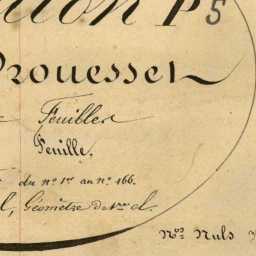 tion P 5
Prouessel
Feuilles
Feuille.
du nº 1er au nº 166.
l, Géomètre de 1ère cl.
Nos Nuls